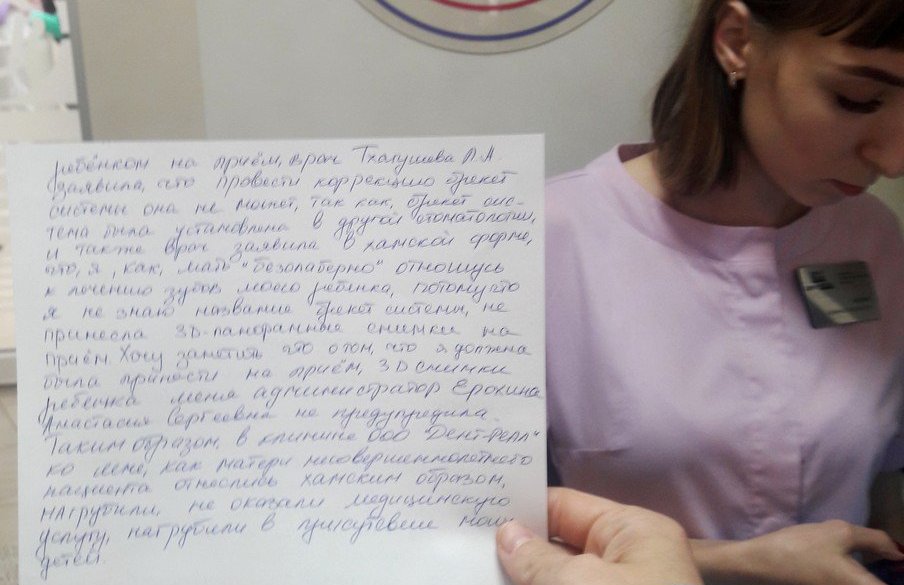 ребёнком на приём, врач Тхагушева Л.А
заявила, что провести коррекцию брекет
системы она не может, так как, брекет сис-
тема была установлена в другой стоматологии,
и также врач заявила в хамской форме,
что, я, как, мать "безалаберно" отношусь
к лечению зубов моего ребёнка, потому что
я не знаю название брекет системы, не
принесла 3D-панорамные снимки на
приём. Хочу заметить что о том, что я должна
была принести на приём, 3D снимки
ребёнка меня администратор Ерохина
Анастасия Сергеевна не предупредила.
Таким образом, в клинике ООО "Дент-Реал"
ко мне, как матери несовершеннолетнего
пациента отнеслись хамским образом,
нагрубили, не оказали медицинскую
услугу, нагрубили в присутствии моих
детей.